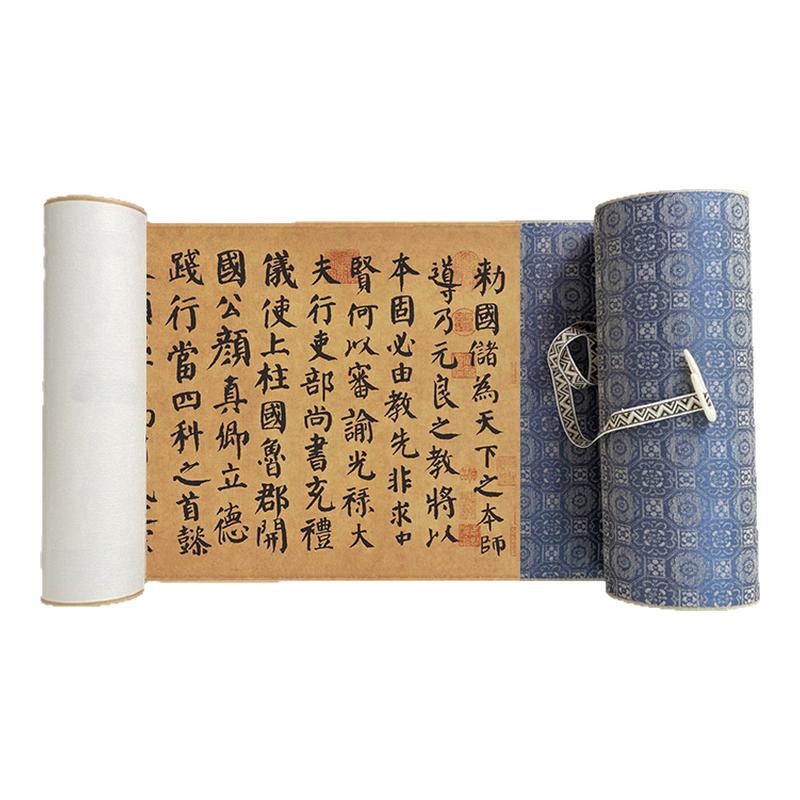 勑國儲為天下之本師
導乃元良之教將以
本固必由教先非求中
賢何以審諭光祿大
夫行吏部尚書充禮
儀使上柱國魯郡開
國公顏真卿立德
踐行當四科之首懿